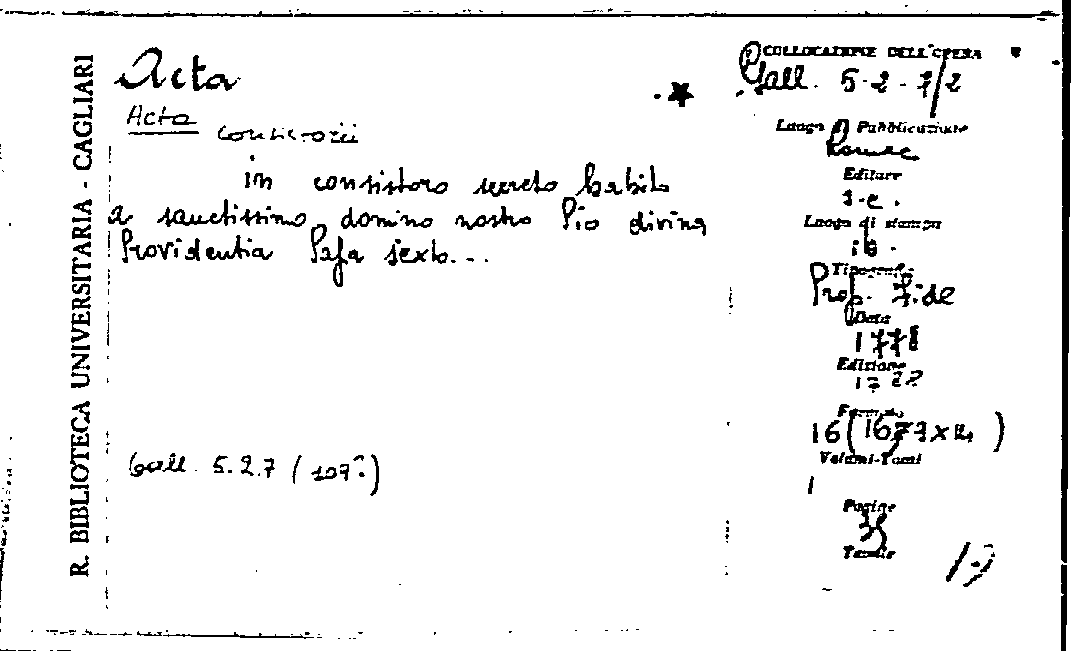 R. BIBLIOTECA UNIVERSITARIA - CAGLIARI
Acta
Acta Consistorii
in consistoro secreto habito
a sanctissimo domino nostro Pio divina
Providentia Papa sexto...
Gall. 5.2.7 (107°)
COLLOCAZIONE DELL'OPERA
Gall. 5-2-7/2
Luogo di Pubblicazione
Romae
Editore
s.e.
Luogo di stampa
ib.
Tipografo
Prop. Fide
Data
1778
Edizione
Formato
16 (
Volumi-Tomi
1
Pagine
35
Tavole